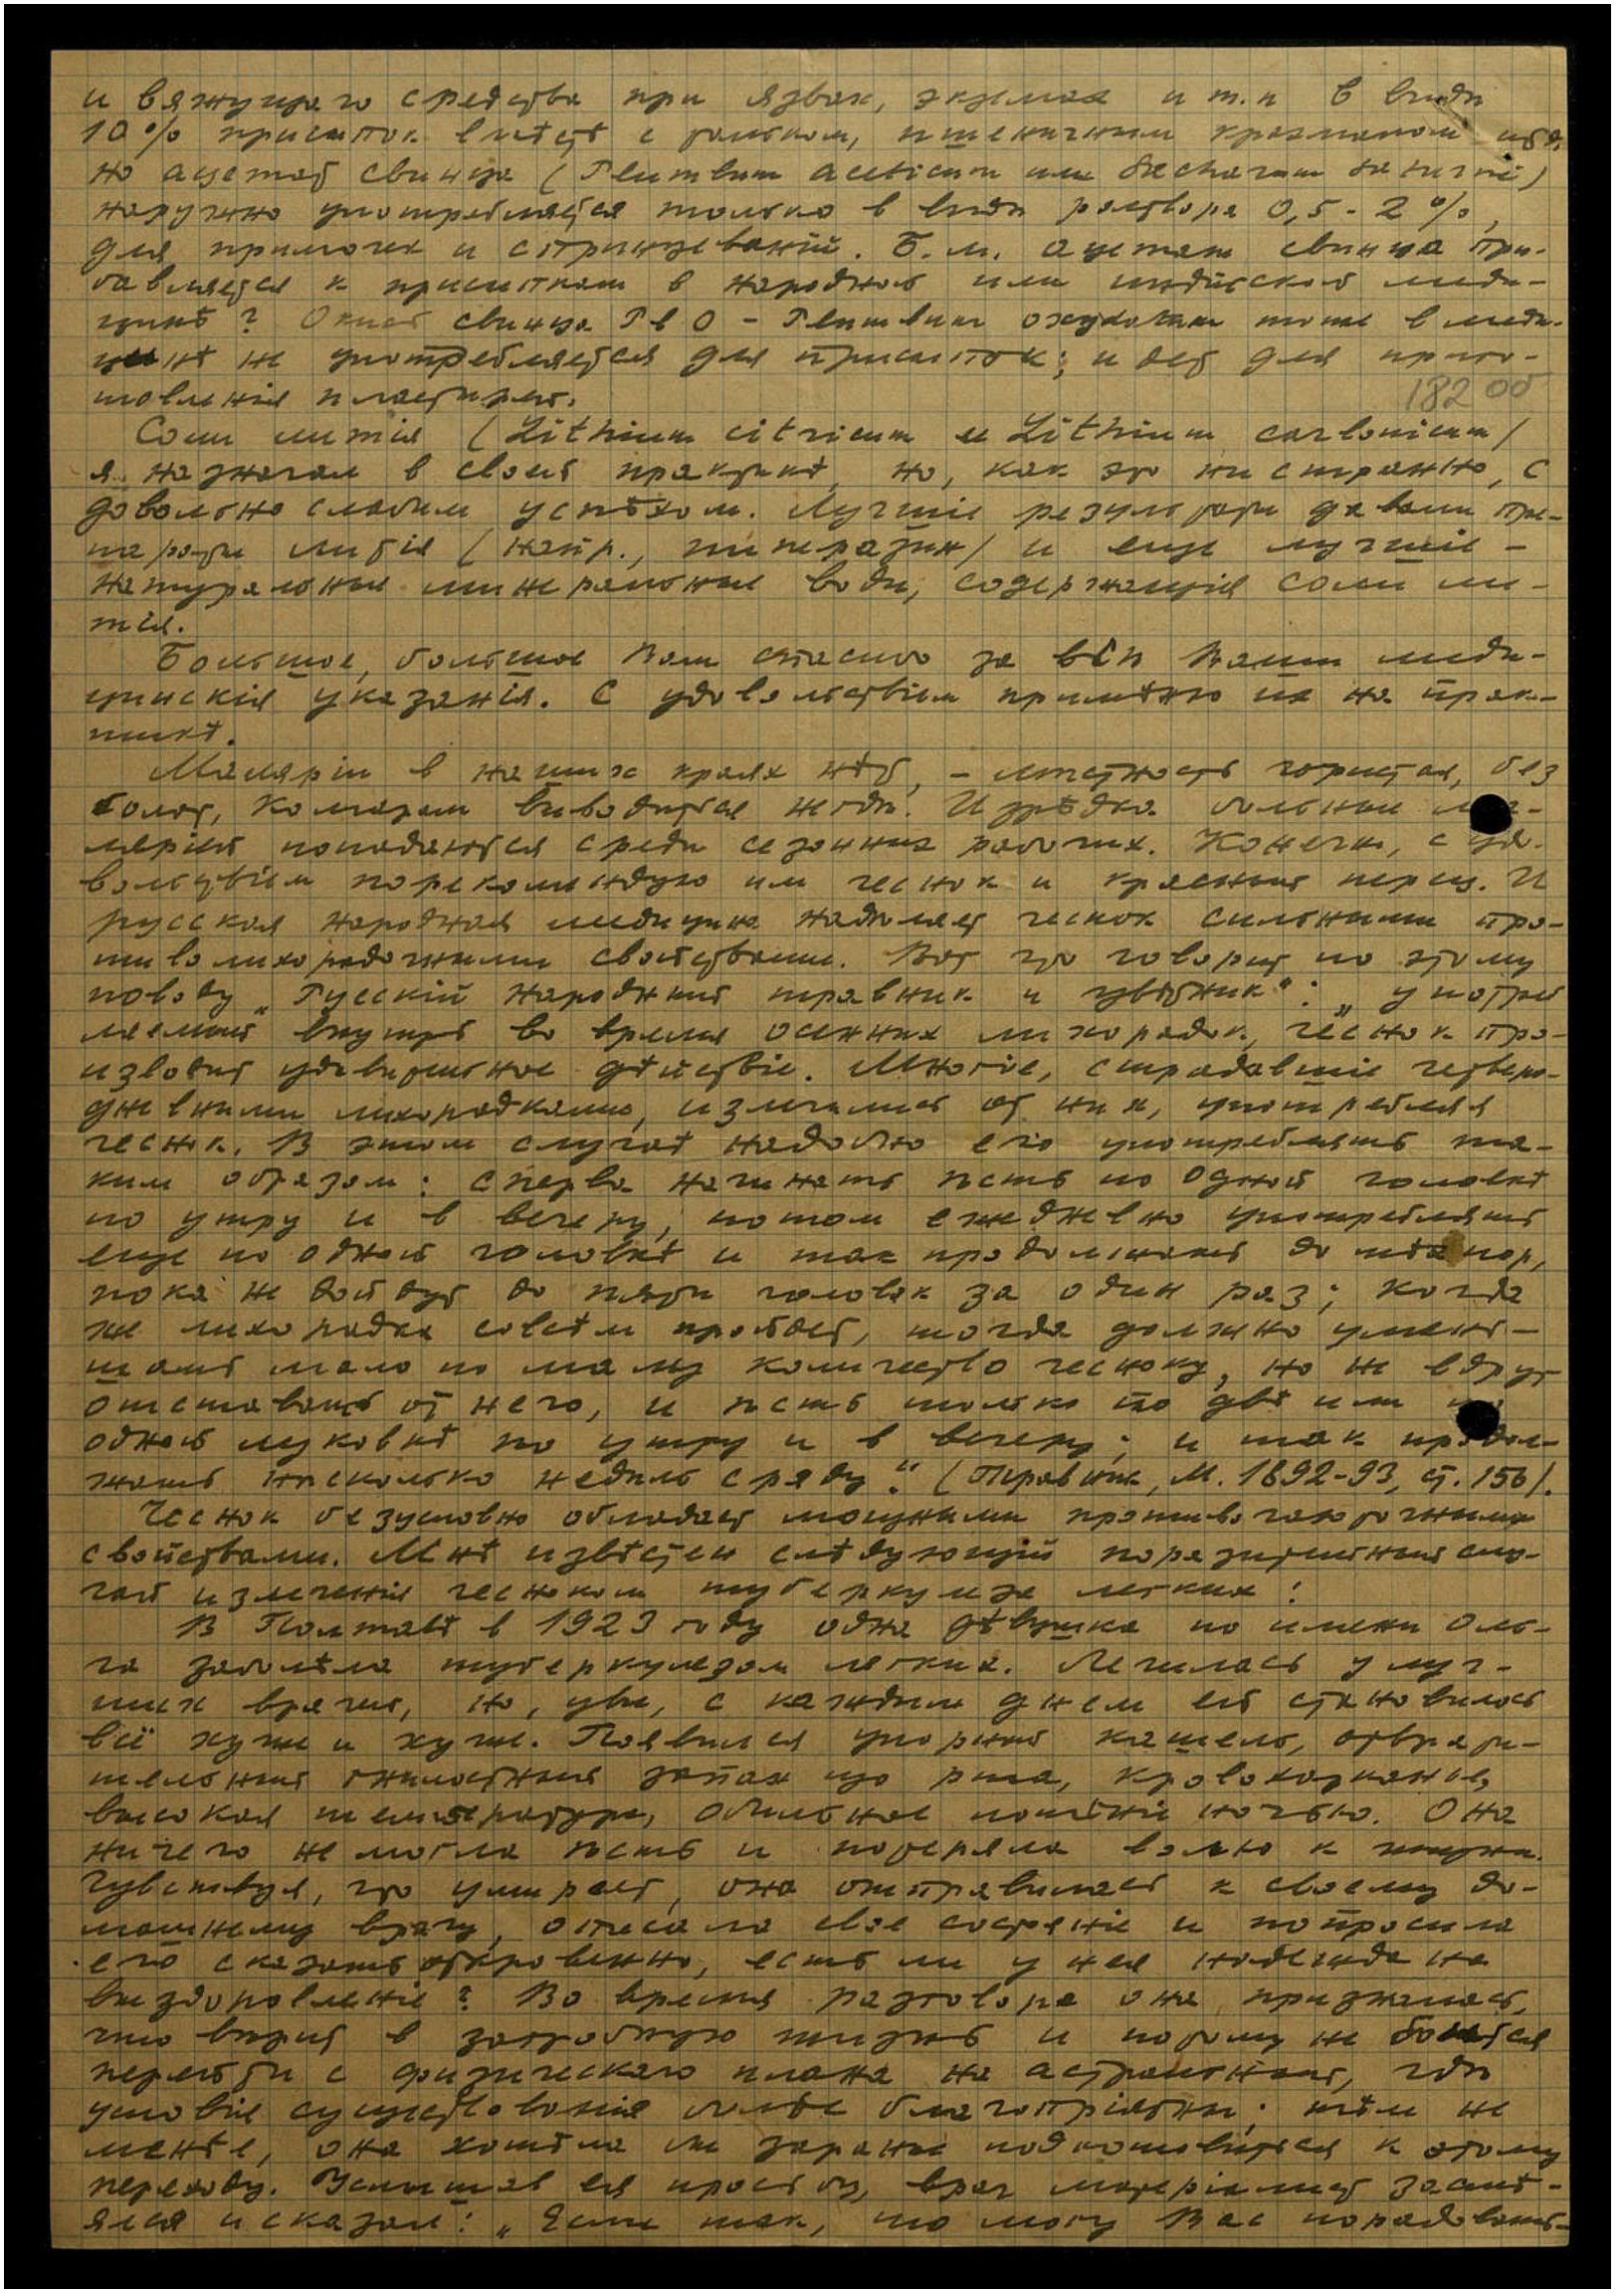 и вяжущаго средства при язвах, экземах и т.п. в видѣ
10% присыпок вмѣстѣ с тальком, пшеничным крахмалом
но ацетат свинца (Plumbum aceticum или Saccharum Saturni)
наружно употребляется только в видѣ раствора 0,5 - 2%,
для примочек и спринцеваній. Б.м. ацетат свинца при-
бавляется к присыпкам в народной или индійской меди-
цинѣ? Окись свинца PbO - Plumbum oxydatum тоже в меди-
цинѣ не употребляется для присыпок; идет для приго-
товленія пластырей.
182 об
Соли литія (Lithium citricum и Lithium carbonicum)
я назначал в своей практикѣ, но, как это ни странно, с
довольно слабым успѣхом. Лучшіе результаты давали пре-
параты литія (напр., пиперазин) и еще лучшіе -
натуральныя минеральныя воды, содержащія соли ли-
тія.
Большое, большое Вам спасибо за всѣ Ваши меди-
цинскія указанія. С удовольствіем примѣню их на прак-
тикѣ.
Маляріи в наших краях нѣт, - мѣстность гористая, без
болот, комарам выводиться негдѣ. Изрѣдка больные ма-
ляріей попадаются среди сезонных рабочих. Конечно, с удо-
вольствіем порекомендую им чеснок и красный перец. И
русская народная медицина надѣляет чеснок сильными про-
тиволихорадочными свойствами. Вот что говорит по этому
поводу „Русскій народный травник и цвѣтник“: „употреб
ляемый внутрь во время осенних лихорадок, чеснок про-
изводит удивительное дѣйствіе. Многіе, страдавшіе четверо-
дневными лихорадками, излечились от них, употребляя
чеснок. В этом случаѣ надобно его употреблять та-
ким образом: сперва начинать ѣсть по одной головкѣ
по утру и в вечеру, потом ежедневно употреблять
еще по одной головкѣ и так продолжать до тѣх пор,
пока не дойдут до пяти головок за один раз; когда
же лихорадка совсѣм пройдет, тогда должно умень-
шать мало по малу количество чесноку, но не вдруг
отставать от него, и ѣсть только по двѣ или по
одной луковкѣ по утру и в вечеру; и так продол-
жать нѣсколько недѣль сряду.“ (Травник, М. 1892-93, ст. 156).
Чеснок безусловно обладает мощными противочахоточными
свойствами. Мнѣ извѣстен слѣдующій поразительный слу-
чай излеченія чесноком туберкулеза легких:
В Полтавѣ в 1923 году одна дѣвушка по имени Оль-
га заболѣла туберкулезом легких. Лечилась у луч-
ших врачей, но, увы, с каждым днем ей становилось
всё хуже и хуже. Появился упорный кашель, отврати-
тельный гнилостный запах изо рта, кровохарканье,
высокая температура, обильное потѣніе ночью. Она
ничего не могла ѣсть и потеряла волю к жизни.
Чувствуя, что умирает, она отправилась к своему до-
машнему врачу, описала свое состояніе и попросила
его сказать откровенно, есть ли у нея надежда на
выздоровленіе? Во время разговора она призналась,
что вѣрит в загробную жизнь и потому не боится
перейти с физическаго плана на астральный, гдѣ
условія существованія болѣе благопріятны; тѣм не
менѣе, она хотѣла бы заранѣе подготовиться к этому
переходу. Услышав ея просьбу, врач матеріалист засмѣ-
ялся и сказал: „Если так, то могу Вас порадовать-